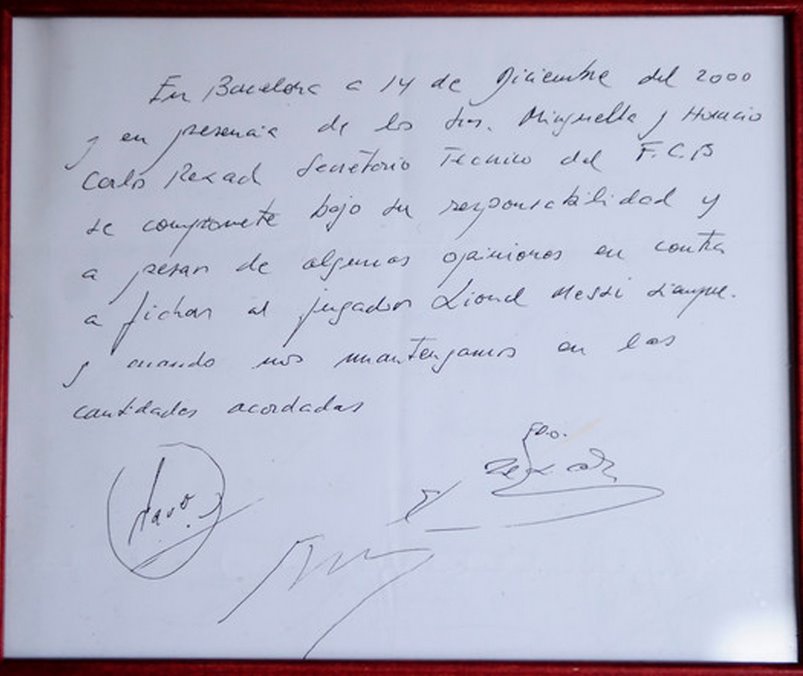 En Barcelona a 14 de Diciembre del 2000
y en presencia de los Sres. Minguella y Horacio
Carlos Rexach Secretario Tecnico del F.C.B
se compromete bajo su responsabilidad y
a pesar de algunas opiniones en contra
a fichar al jugador Lionel Messi siempre
y cuando nos mantengamos en las
cantidades acordadas
Fdo.
Rexach